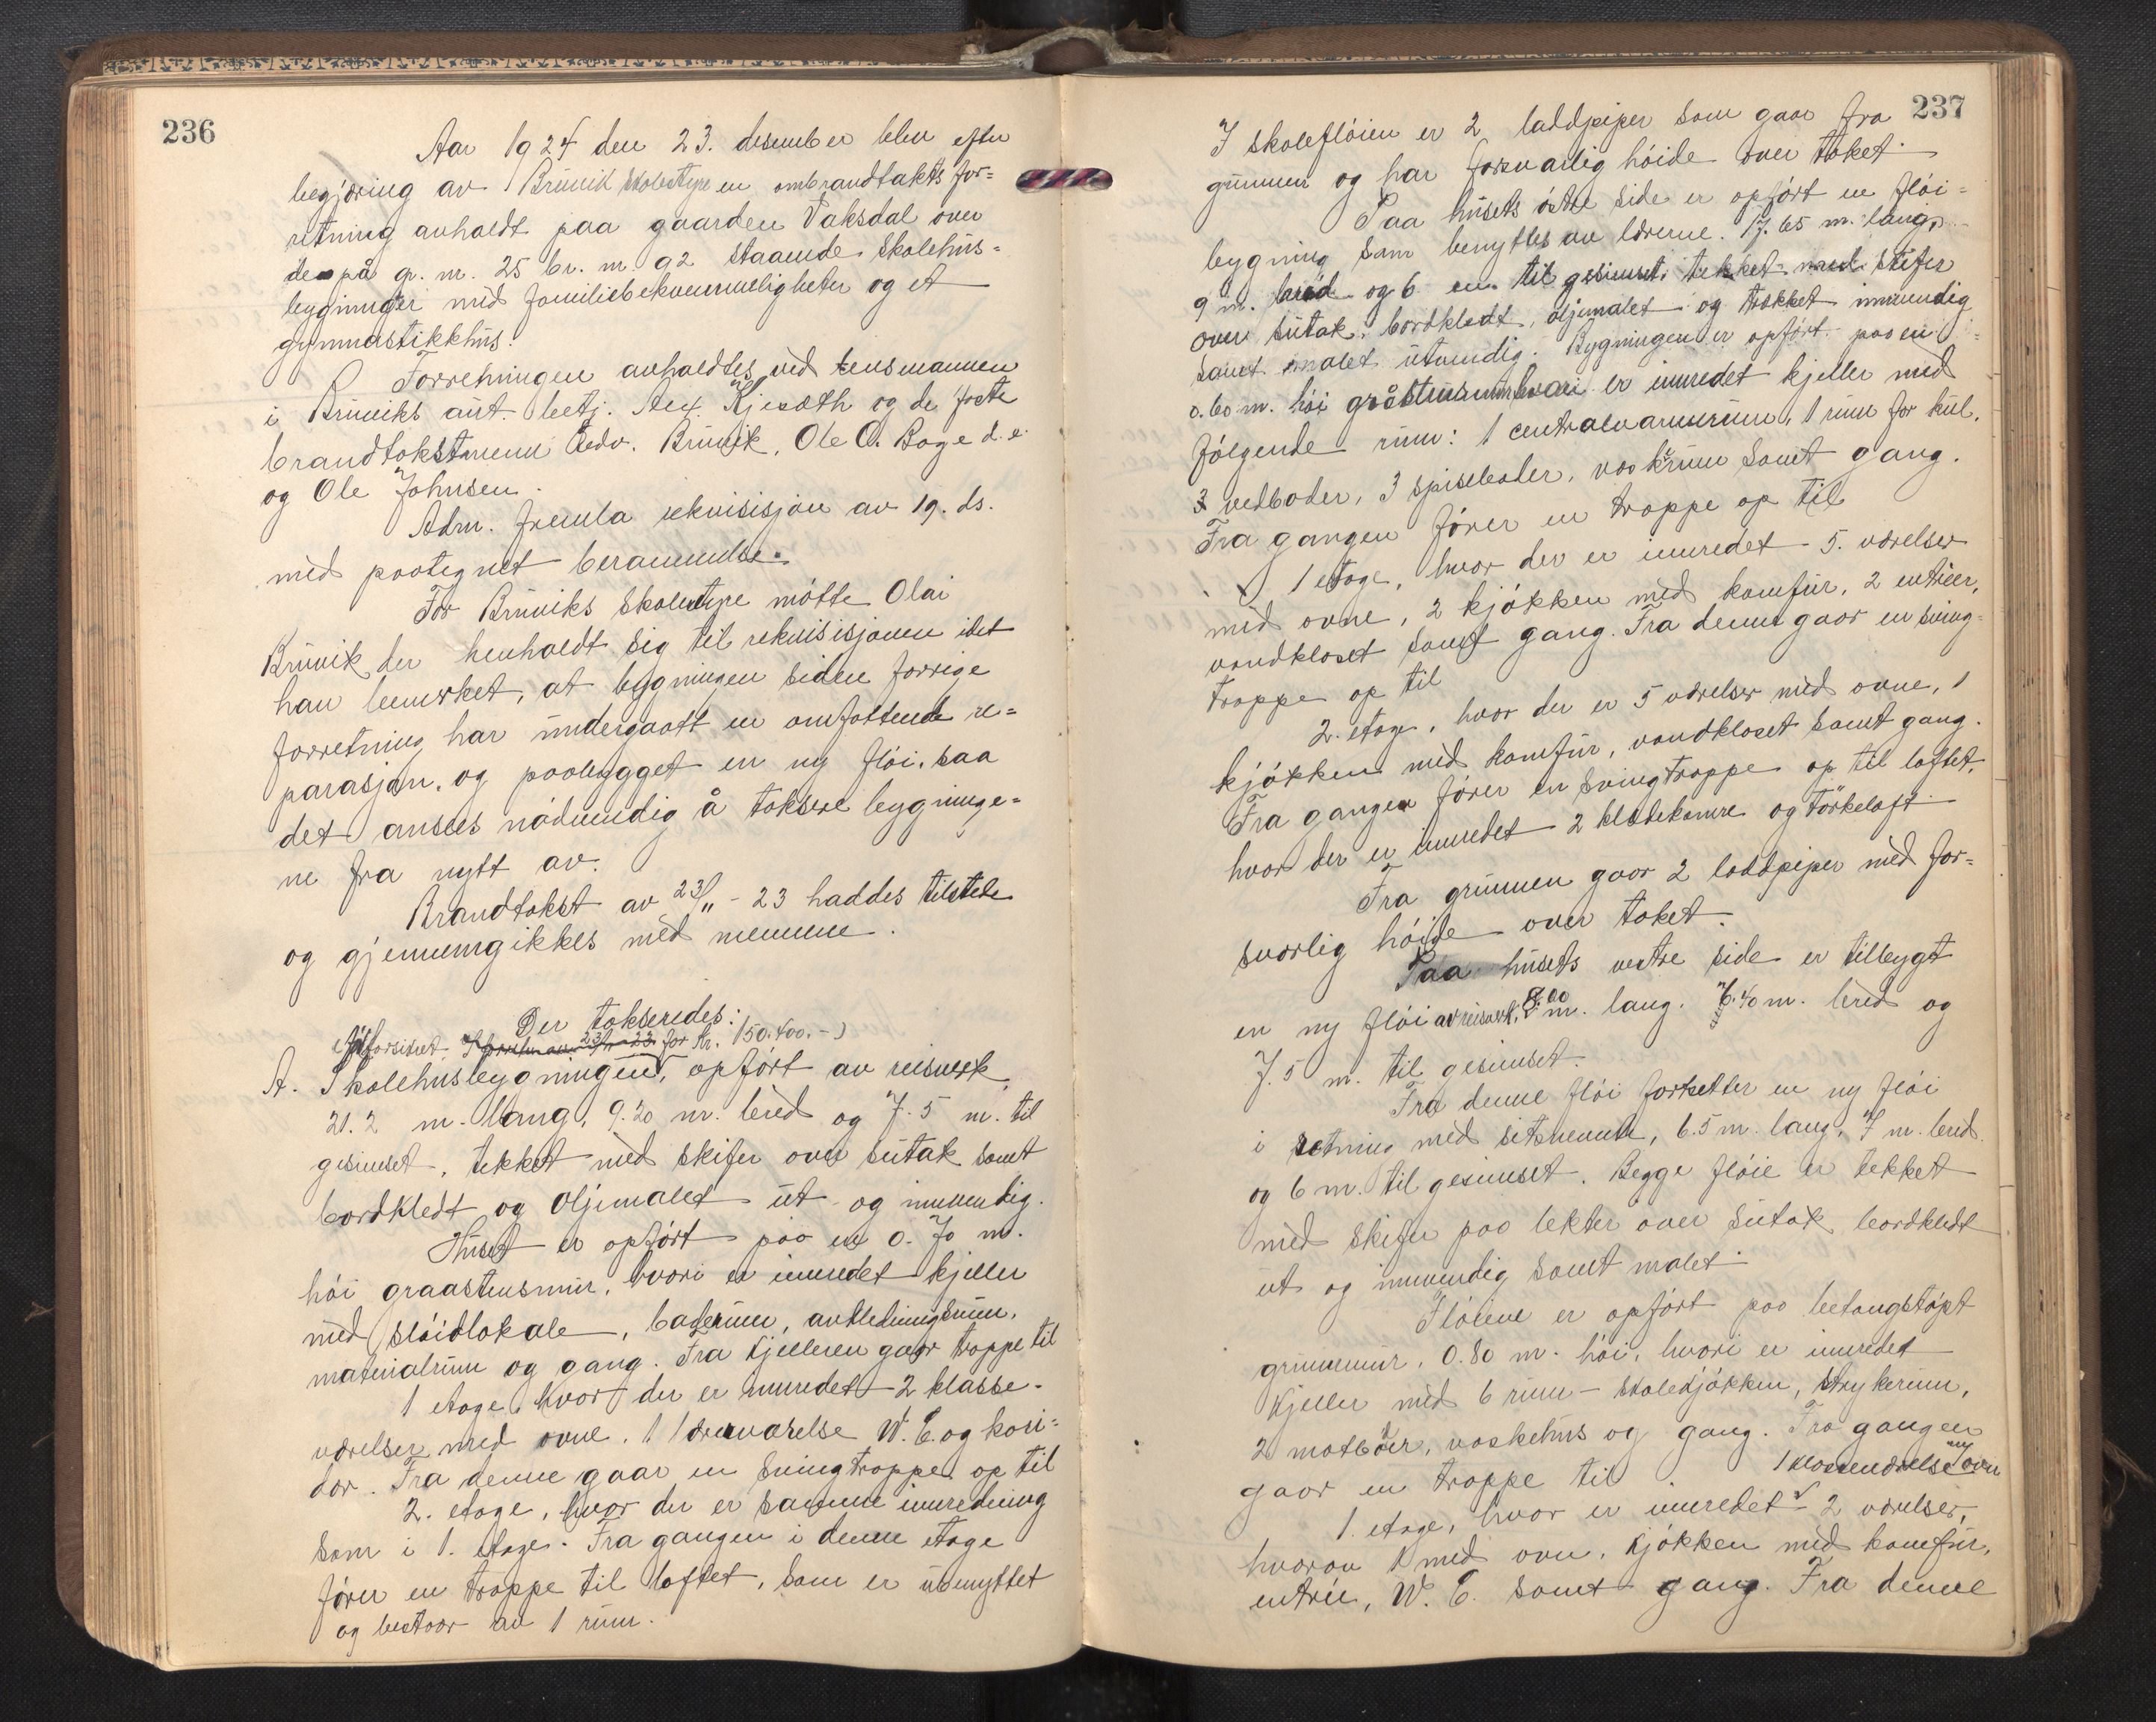 236
Aar 1924 den 23. desember blev efter
begjæring av Bruvik skolestyre en ombrandtakts for=
retning avholdt paa gaarden Vaksdal over
de på gr. nr. 25 br. nr. 92 staaende skolehus=
bygninger med familiebekvemmeligheter og et
gymnastikkhus.
Forretningen avholdtes ved lensmannen
i Bruviks ved betj. Alex. Kjesæth og de faste
brandtakstmenn Edv. Bruvik, Ole O. Boge d. e.
og Ole Johnsen.
Adm. fremla rekvisisjon av 19. ds.
med paategnet berammelse.
For Bruviks skolestyre møtte Olai
Bruvik der henholdt sig til rekvisisjonen idet
han bemerket, at bygningen siden forrige
forretning har undergaatt en omfattende re=
parasjon, og paabygget en ny fløi, saa
det ansees nødvendig å taksere bygninge=
ne fra nytt av.
Brandtakst av 23/11 - 23 haddes tilstede
og gjennemgikkes med mennene.
Der takseredes:
for kr. 150.400.-)
A. Skolehusbygningen, opført av reisverk,
21.2 m. lang, 9.20 m. bred og 7.5 m. til
gesimset, tekket med skifer over sutak samt
bordkledt og oljemalet ut- og innvendig.
Huset er opført paa en 0.70 m.
høi graastensmur, hvori er innredet kjeller
med sløidlokale, baderum, avkledningsrum,
materialrum og gang. Fra kjelleren gaar trappe til
1 etage, hvor der er innredet 2 klasse-
værelser med ovne, 1 lærerværelse W.C. og kori=
dor. Fra denne gaar en svingtrappe op til
2. etage, hvor der er samme innredning
som i 1. etage. Fra gangen i denne etage
fører en trappe til loftet, som er ubenyttet
og bestaar av 1 rum.
237
I skolefløien er 2 laddpiper som gaar fra
grunnen og har forsvarlig høide over taket.
Paa husets østre side er opført en fløi=
bygning som benyttes av lærerne. 17.65 m. lang,
9 m. bred og 6 m. til gesimset, tekket med skifer
over sutak, bordkledt, oljemalet og trækket innvendig
samt malet utvendig. Bygningen er opført paa en
0.60 m. høi gråstensmur hvori er innredet kjeller med
følgende rum: 1 centralvarmerum, 1 rum for kul,
3 vedboder, 3 spiseboder, vaskerum samt gang.
Fra gangen fører en trappe op til
1 etage, hvor der er innredet 5. værelser
med ovne, 2 kjøkken med komfur, 2 entreer,
vandkloset samt gang. Fra denne gaar en sving-
trappe op til
2. etage, hvor der er 5 værelser med ovne, 1
kjøkken med komfur, vandkloset samt gang.
Fra gangen fører en svingtrappe op til loftet,
hvor der er innredet 2 klædekamre og tørkeloft.
Fra grunnen gaar 2 laddpiper med for=
svarlig høide over taket.
Paa husets vestre side er tilbygt
en ny fløi av reisverk, 8.00 m. lang. 6.40 m. bred og
7.5 m. til gesimset.
Fra denne fløi fortsetter en ny fløi
i retning med sitsnevnte, 6.5 m. lang, 7 m. bred
og 6 m. til gesimset. Begge fløie er tekket
med skifer paa lekter over sutak, bordkledt
ut og innvendig samt malet.
Fløiene er opført paa betongstøpt
grunnmur, 0.80 m. høi, hvori er innredet
kjeller med 6 rum - skolekjøkken, strykerum,
2 matboder, vaskehus og gang. Fra gangen
gaar en trappe til
1 klasseværelse m/ovn
1. etage, hvor er innredet 2 værelser,
hvorav 1 med ovn, kjøkken med komfur,
entrée, W.C. samt gang. Fra denne